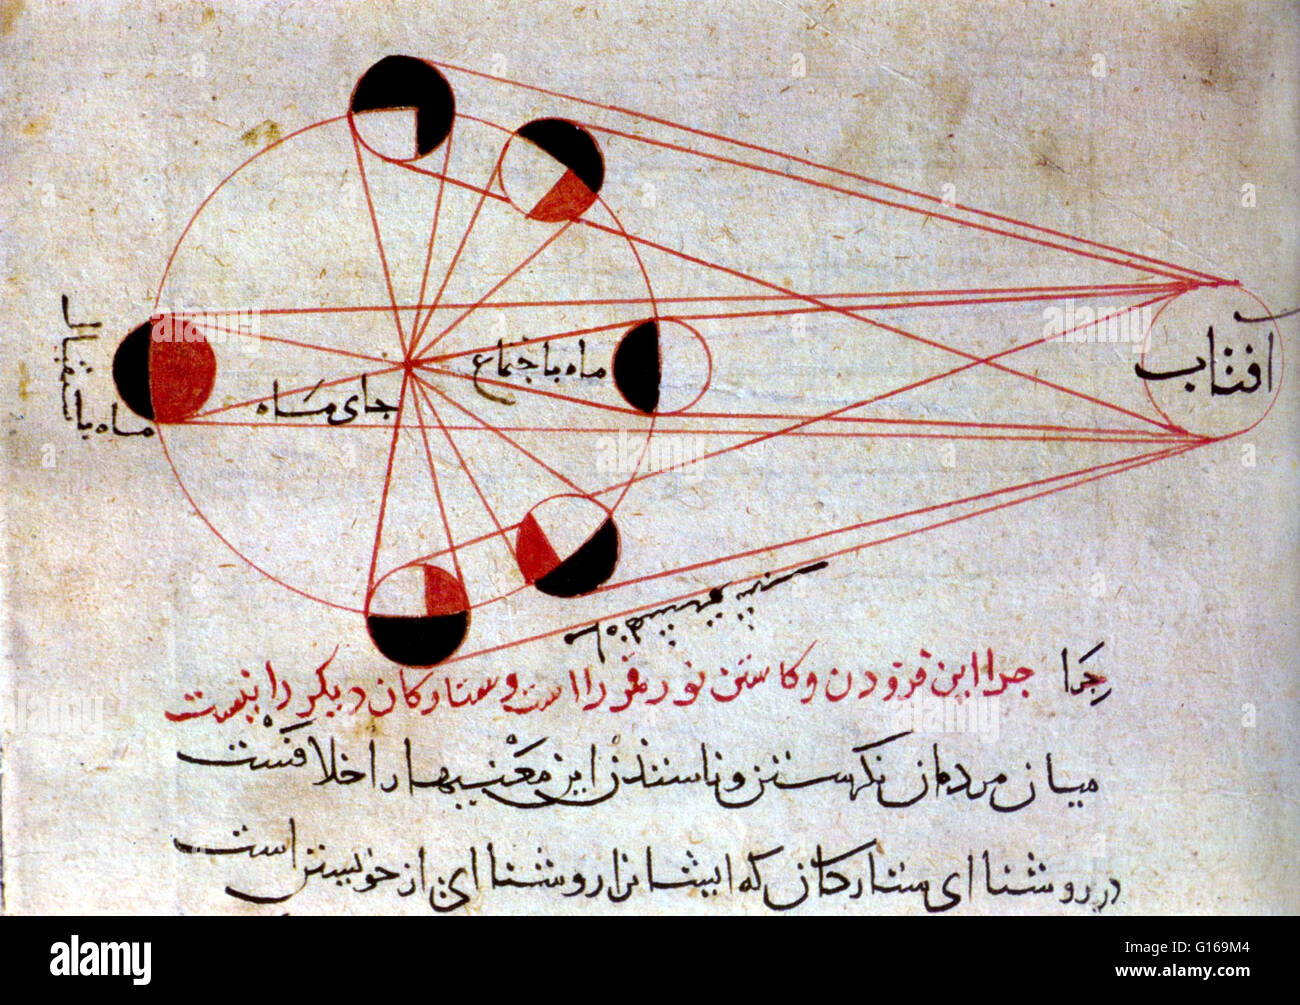 افتاب
ماه باجتماع
جای ماه
ماه باستقبال
چرا چرا این فزودن و کاستن نور قمر را است و ستارکان دیکر را نیست
میان مردمان نکرستن و ناسندن این معنیها را اخلافست
در روشنا ای ستارکان که ایشانرا روشنا ای از خویشتن است
alamy
G169M4
www.alamy.com